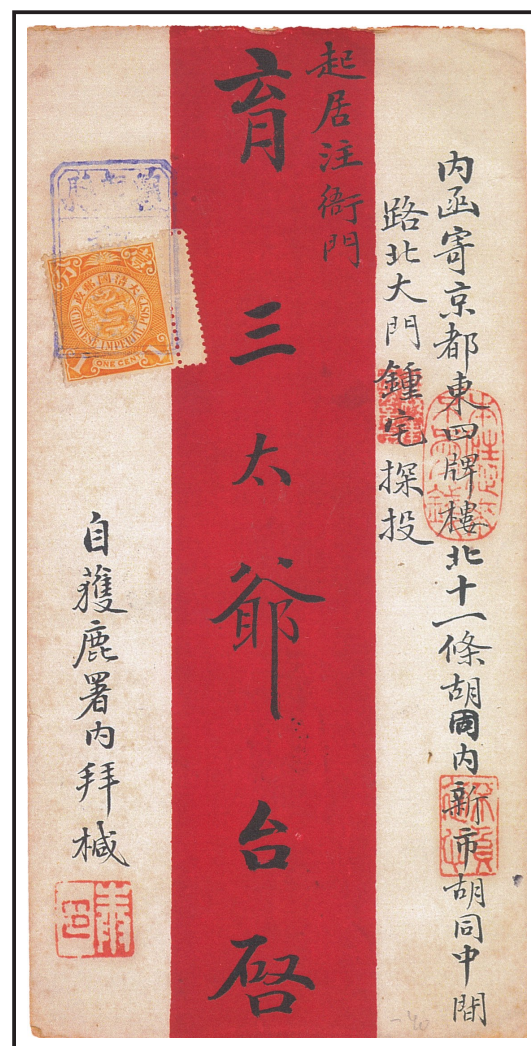 内函寄京都東四牌樓北十一條胡同内新市胡同中間
路北大門鍾宅探投
起居注衙門
育三太爺台啓
自獲鹿署内拜椷
大清國郵政
CHINESE IMPERIAL POST
1 ONE CENT 1